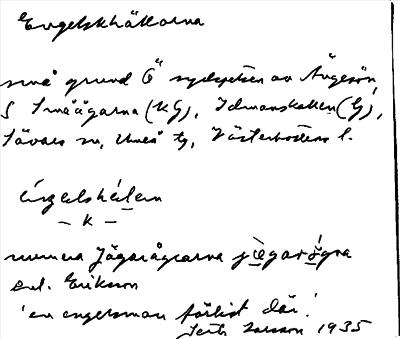 Engelskhällarna
små grund Ö sydspetsen av Ängesön
S Småågarna (KG), Idmanshallen (G),
Sävars sn, Umeå tg, Västerbottens l.
éngelshéḷen
– K –
numera Jägarågrarna
enl. Eriksson
'en engelsman förlist där'.
Larsson 1935